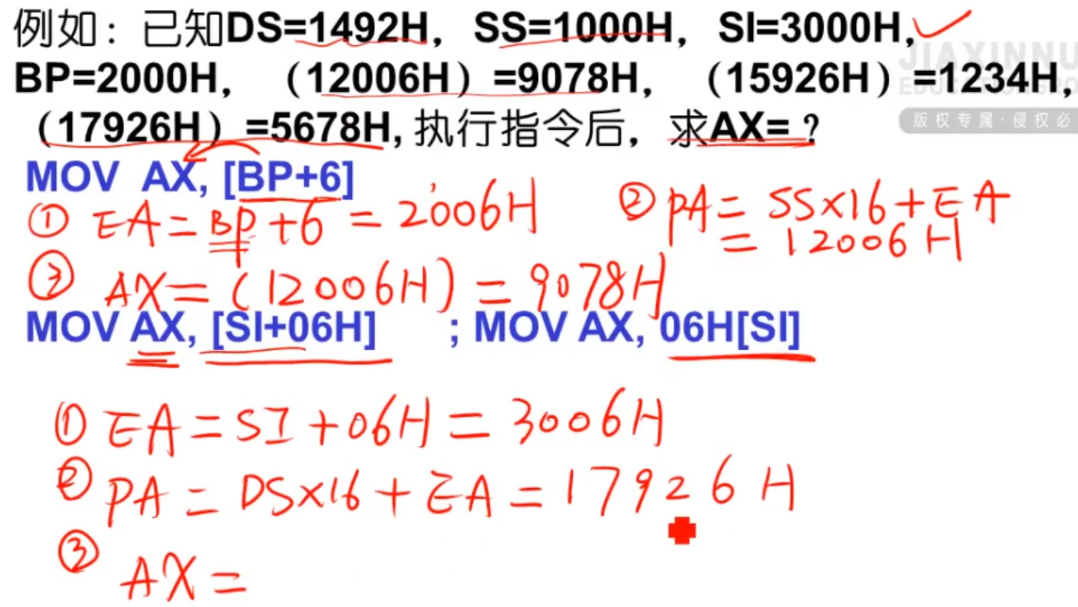 例如：已知DS=1492H，SS=1000H，SI=3000H,
BP=2000H，（12006H）=9078H，（15926H）=1234H,
（17926H）=5678H, 执行指令后，求AX=？
版权专属·侵权必
MOV AX, [BP+6]
① EA = BP + 6 = 2006H
② PA = SS×16 + EA
= 12006H
③ AX = (12006H) = 9078H
MOV AX, [SI+06H] ; MOV AX, 06H[SI]
① EA = SI + 06H = 3006H
② PA = DS×16 + EA = 17926H
③ AX =